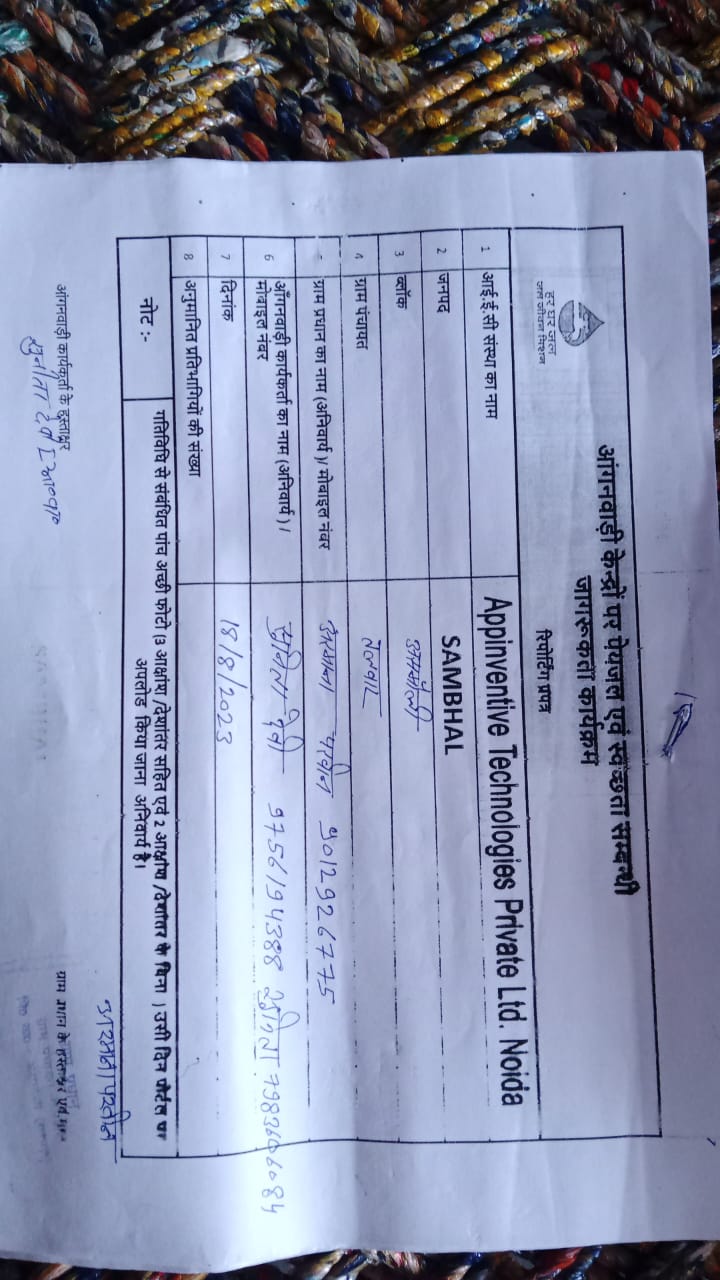 हर घर जल
जल जीवन मिशन
आंगनवाड़ी केन्द्रों पर पेयजल एवं स्वच्छता सम्बन्धी
जागरूकता कार्यक्रम
रिपोर्टिंग प्रपत्र
1 आई.ई.सी संस्था का नाम Appinventive Technologies Private Ltd. Noida
2 जनपद SAMBHAL
3 ब्लॉक
4 ग्राम पंचायत
ग्राम प्रधान का नाम (अनिवार्य)/ मोबाइल नंबर 9012926775
6 आँगनवाड़ी कार्यकर्ता का नाम (अनिवार्य)/ देवी 9756194388
मोबाइल नंबर
7 दिनांक 18/8/2023
8 अनुमानित प्रतिभागियों की संख्या
नोट :- गतिविधि से संबंधित पांच अच्छी फोटो (3 आक्षांश /देशांतर सहित एवं 2 आक्षांश /देशांतर के बिना ) उसी दिन पोर्टल पर
अपलोड किया जाना अनिवार्य है।
आंगनवाड़ी कार्यकर्ता के हस्ताक्षर
ग्राम प्रधान के हस्ताक्षर एवं